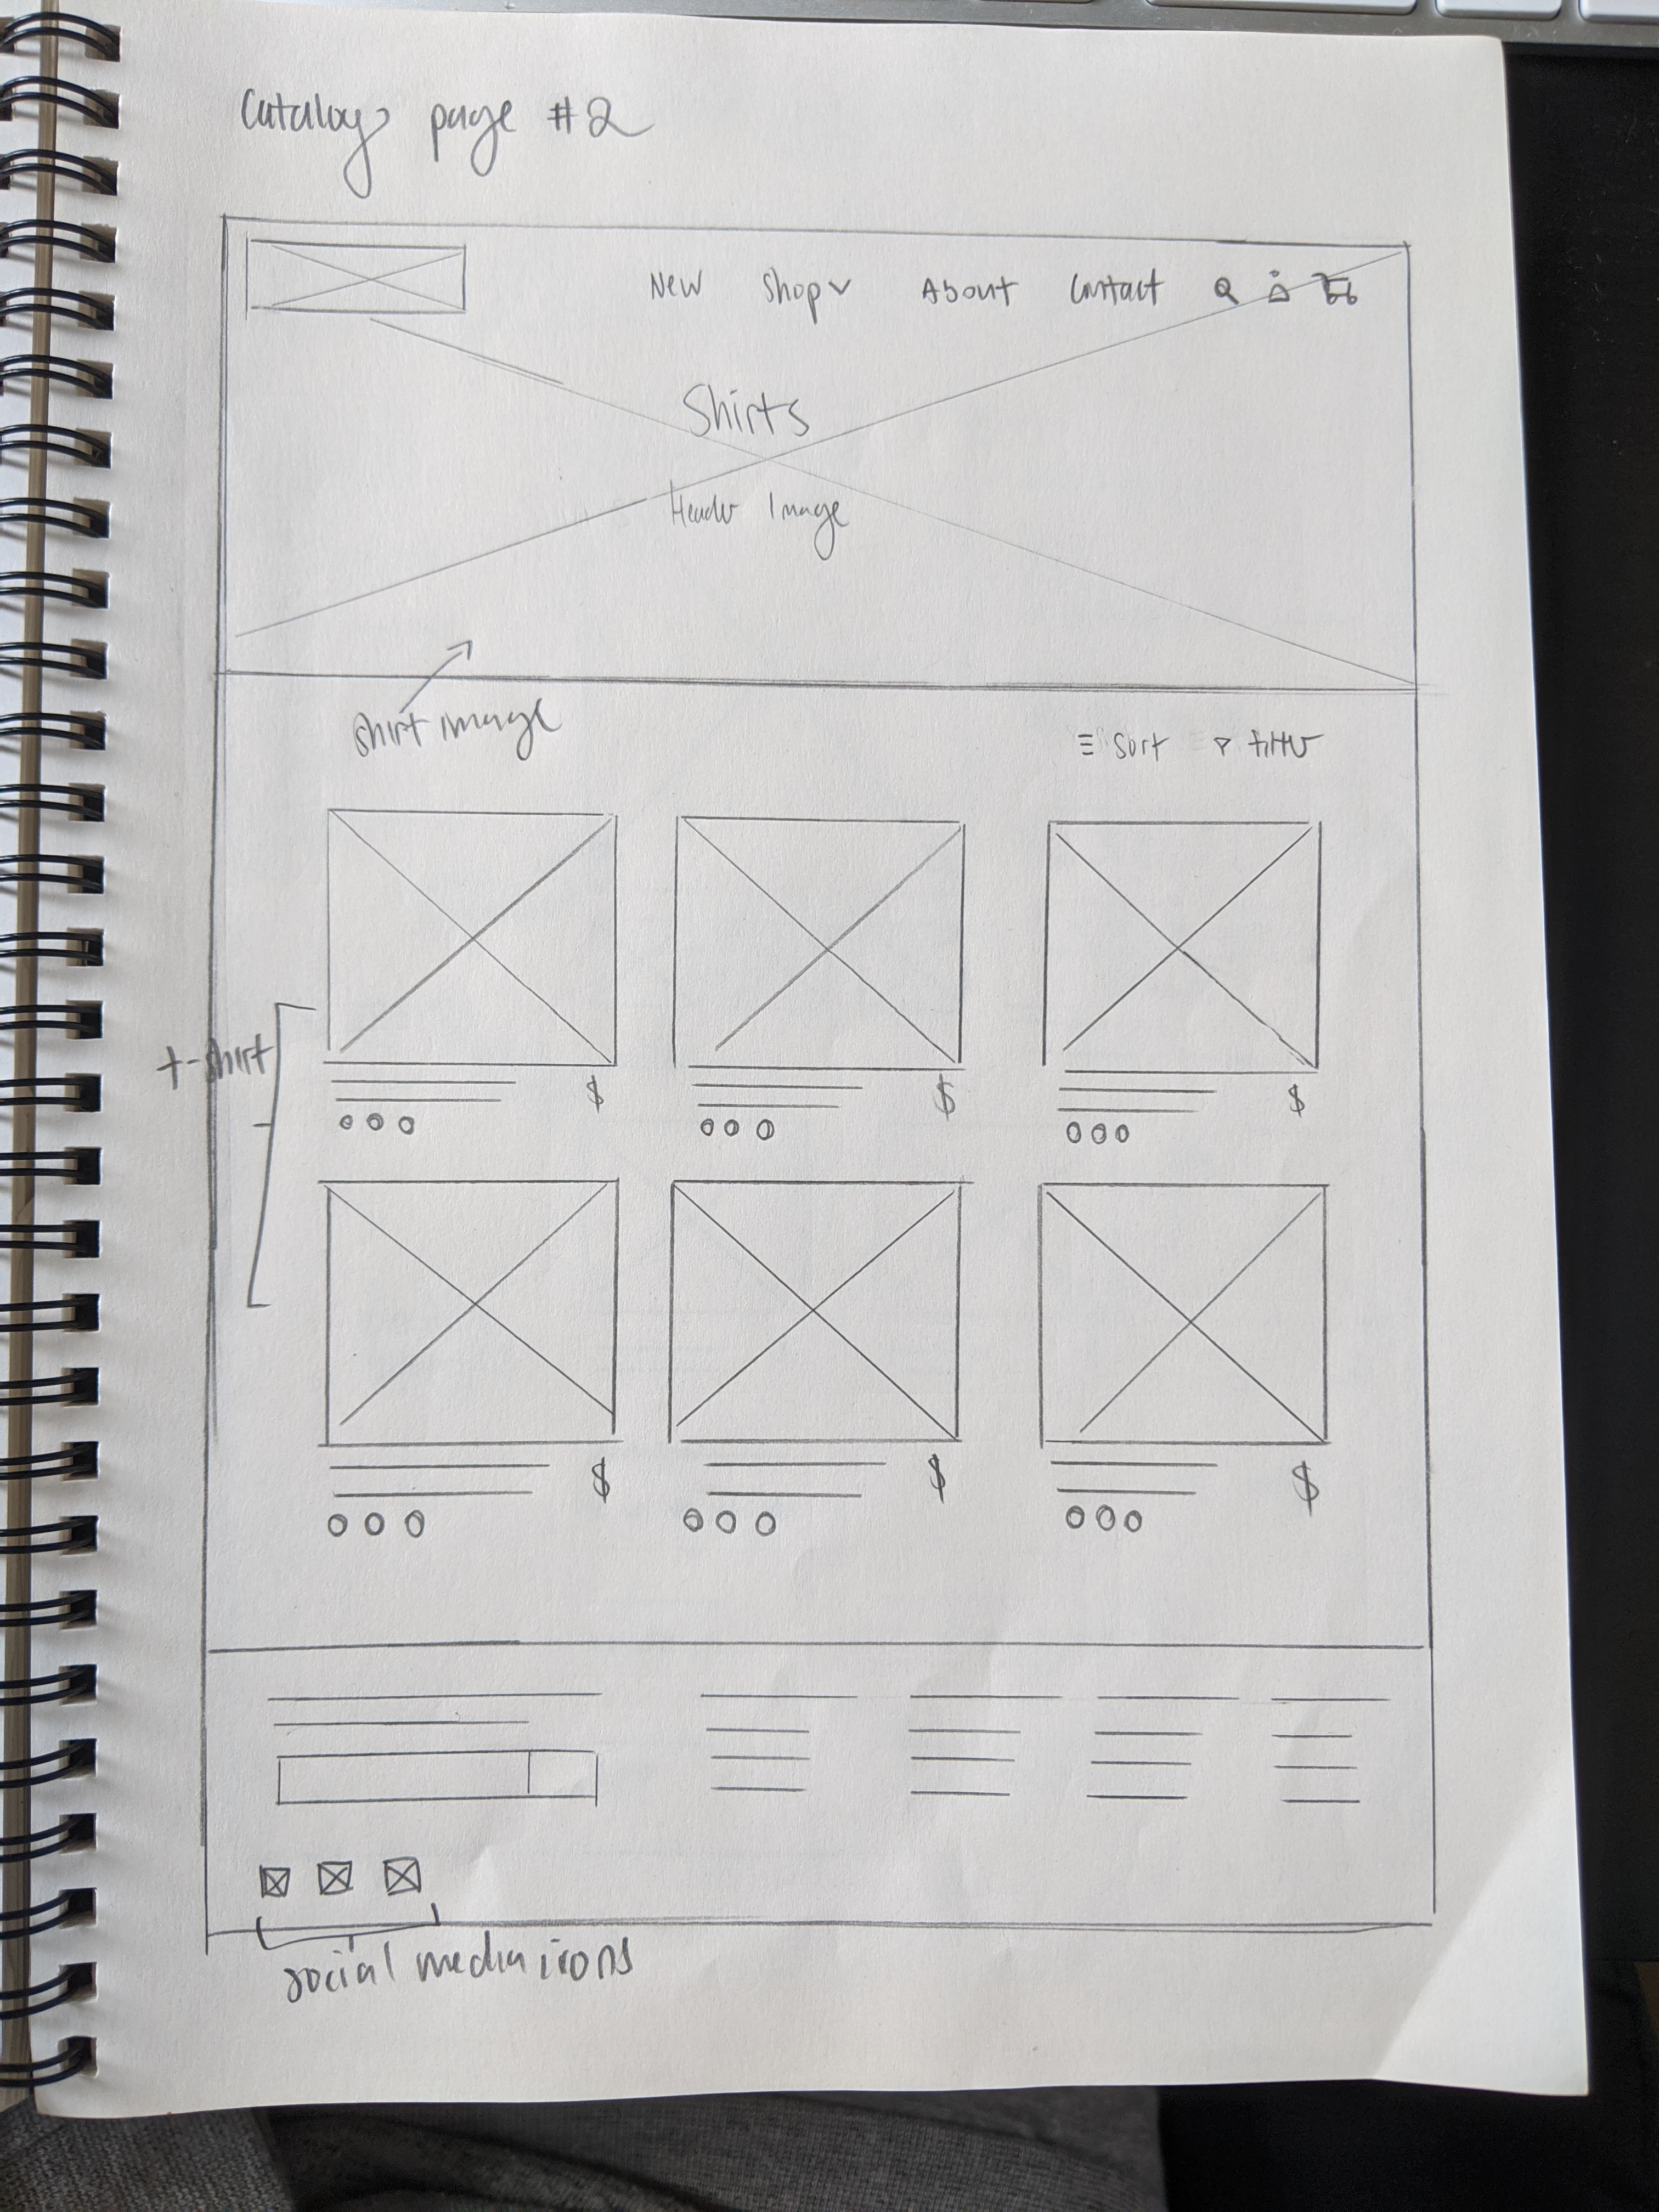 Catalog page #2
New Shop About Contact
Shirts
Header Image
shirt image
sort filter
t-shirt
$ $ $
$ $ $
social media icons